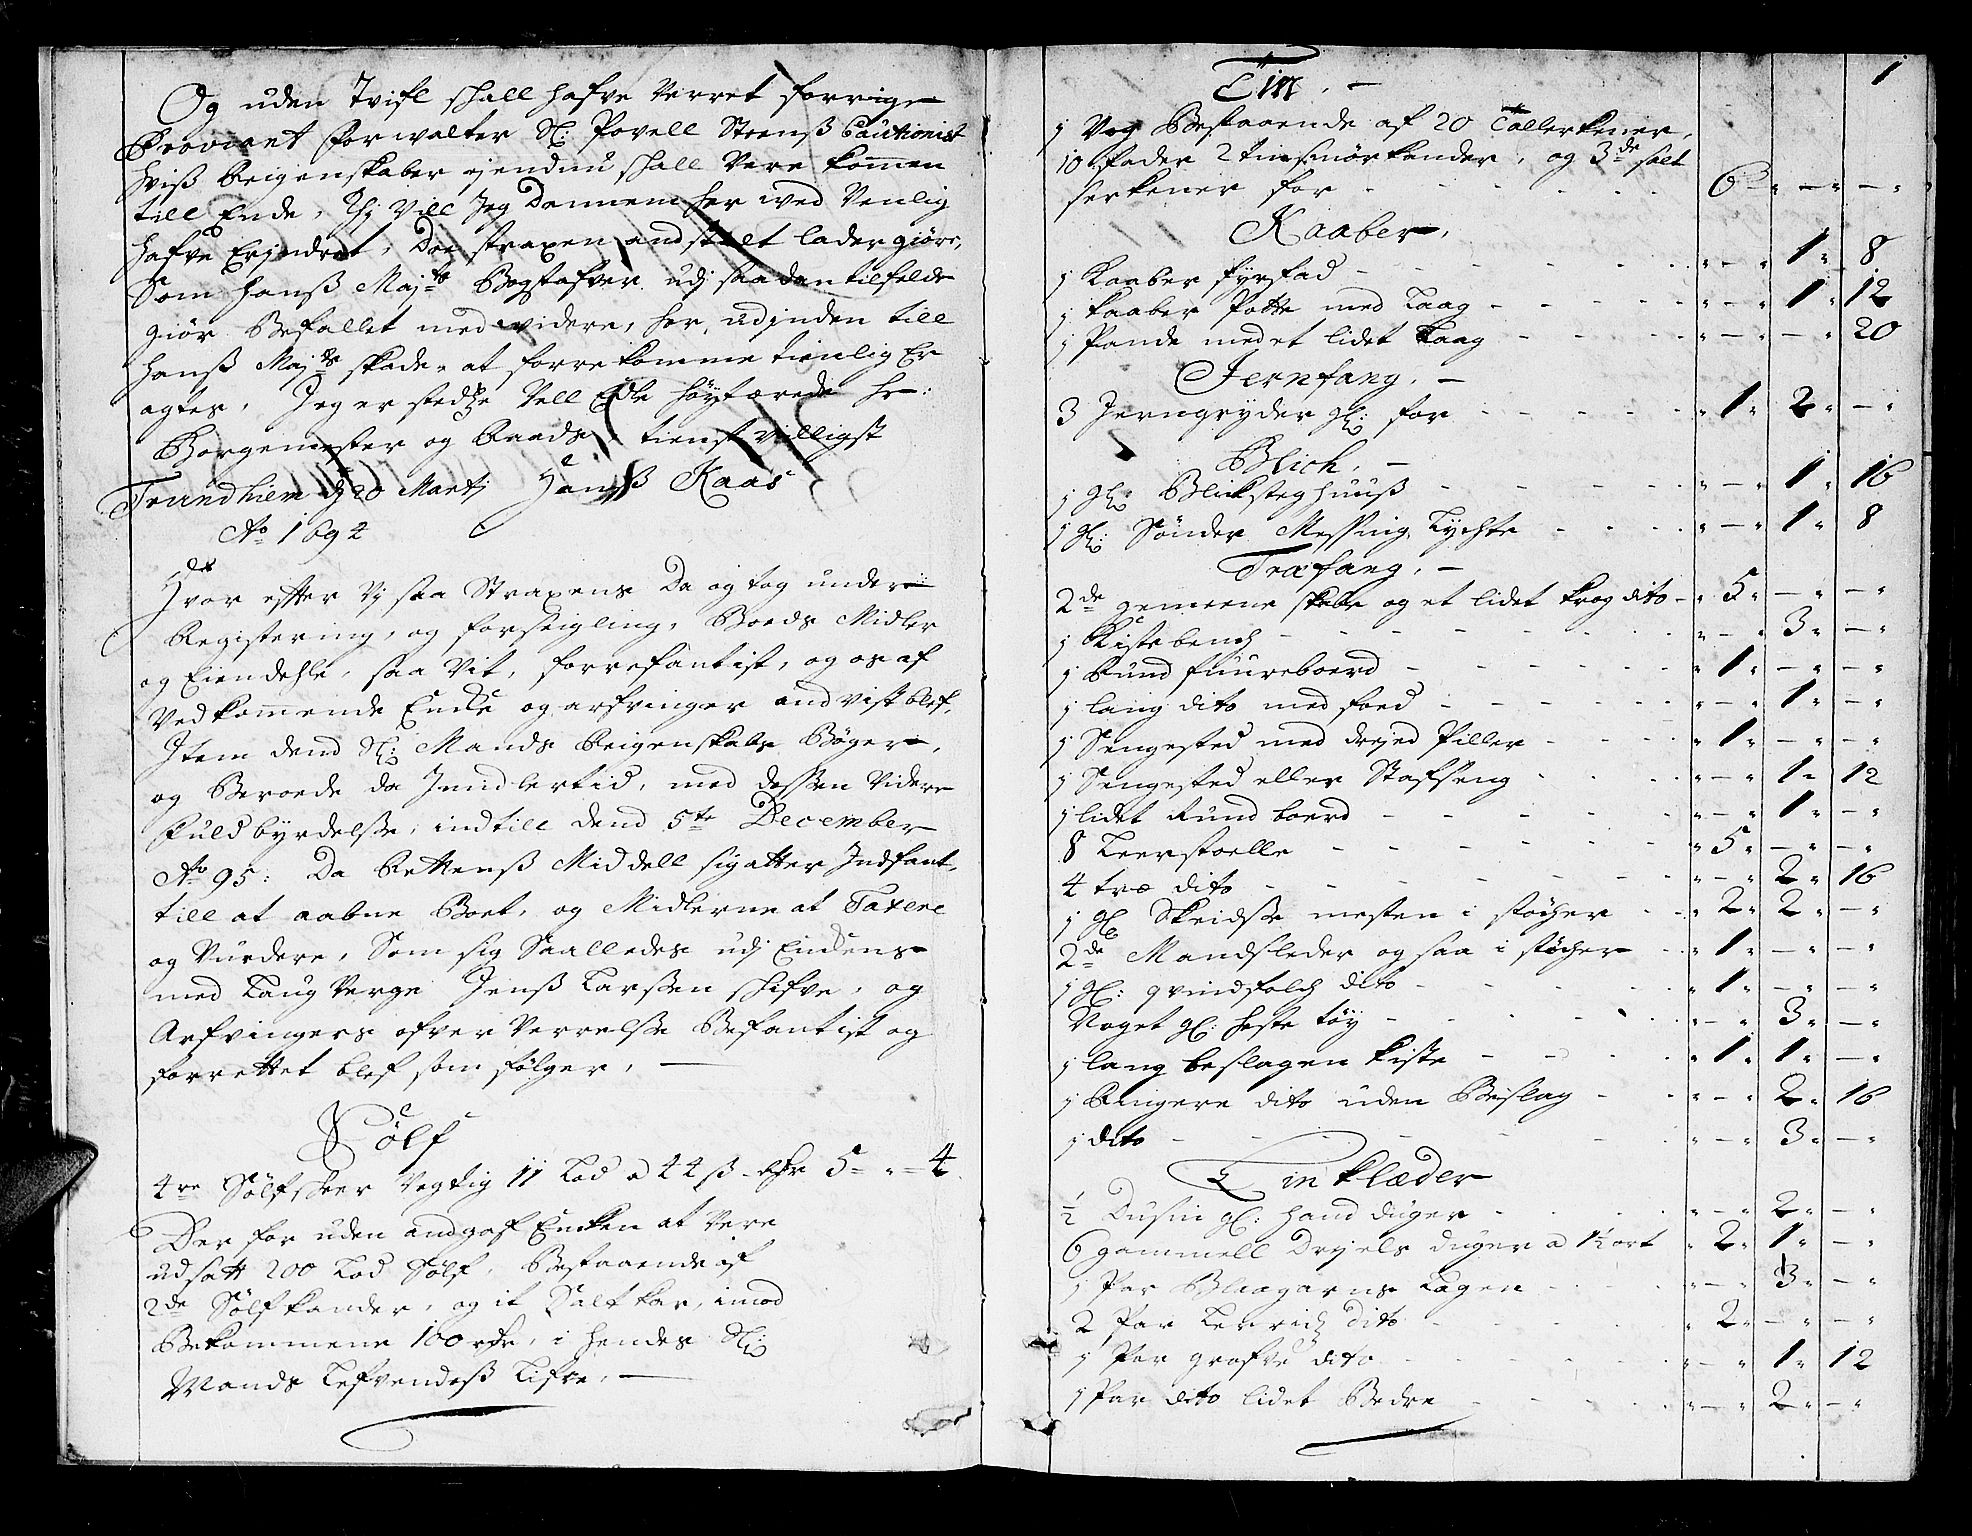 Og uden Tvifl shall hafve Verret forrige
Proviant forwalter Sl: Povell Steenß Cautionist
hviß Reigenskaber ejendnu shall Vere kommen
till Ende, Thj Vill Jeg Dennem her wed Venlig
hafve Erjndret, Det straxen andstalt lader giöre,
Som Hanß Maj:ts Bogstafver udj saadan tilfelde
giör Befallet med widere, her, udjnden till
Hanß Maj:ts skade, at forrekomme tienlig Er
agtes, Jeg er stedtze Vell Edle höytærede Hr:
Borgemester og Raads, tienst villigst
Trundhiem dj 20 Martj Hanß Kaas
Ao 1692
Hvor efter Vj saa Straxens Da og tog under
Registering, og forseigling, Boeds Midler
og Eiendehle, saa Vit, forrefantist, og os af
Vedkommende Encke og arfvinger andvist blef,
Jtem dend Sl: Mands Reigenskabs Bøger,
og Beroede da Jmidlertid, med dessen Videre
Fuldbyrdelsse, indtill dend 5te December
Ao 95: Da Rettens Middell sig atter Indfant,
till at aabne Boet, og Midlerne at Taxere
og Vurdere, Som sig Saalledes udj Enckens
med Laug Verge Jenß Larssen shifve, og
Arfvingers ofver Verrelsse Befantist og
forrettet blef som fölger,
Sölf
4re Sölfskeer Vegtig 11 Lod a 44 ß - er 5 " 4
Der for uden andgaf Encken at Vere
udsatt 200 Lod Sölf, Bestaaende af
2de Sölfkander, og it Saltkar, imod
Bekommene 100 rdr, i hendes Sl:
Mands Lefvendeß Lifve,
1
Tin.
1 Vog Bestaaende af 20 Tallerkener,
10 fader 2 tinsmörkander, og 3de salt
serkener for 6 " - " - "
Kaaber,
1 Kaaber fyrfad " - " 1 " 8
1 kaaber Potte med Laag " - " 1 " 12
1 Pande med et lidet Laag " - " - " 20
Jernfang.
3 Jerngryder gl: for " 1 " 2 " - "
Blich.
1 gl: Blikstegshuuß " - " 1 " 16
1 gl: Sönder Messing Lychte " - " 1 " 8
Træfang.
2de gemeene skabe og et lidet krog dito " 5 " - " - "
1 Kistebench " - " 3 " - "
1 Rund fuureboerd " 1 " - " - "
1 lang dito med foed " - " 1 " - "
1 Sengested med drejed Piller " 1 " - " - "
1 Sengested eller Stafseng " - " 1 " 12
1 lidet Rund boerd " - " 1 " - "
8 Leerstoelle " 5 " - " - "
4 træ dito " - " 2 " 16
1 gl: Skeidsse mesten i stöcher " 2 " 2 " - "
2de Mandsleder og saa i stöcher " 1 " - " - "
1 gl: qvindfolch dito " 1 " - " - "
Noget gl: heste töy " - " 3 " - "
1 lang beslagen kiste " 1 " 1 " - "
1 Ringere dito uden Beslag " - " 2 " 16
1 dito " - " 3 " - "
Linklæder
1/2 Dusin gl: Hand duger " - " 2 " - "
6 gammell Drejels duger a 1 1/2 ort " 2 " 1 " - "
1 Par Blaagarns Lagen " - " 3 " - "
2 Par Lerridz dito " 2 " - " - "
1 Par grofve dito " - " 1 " 12
1 Par dito lidet Bedre " - " 2 " - "